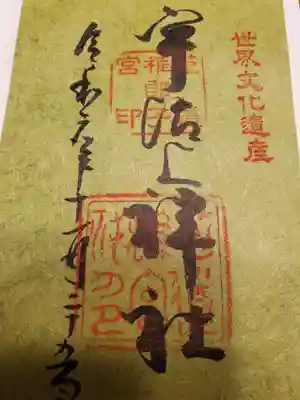 世界文化遺産
宇治上神社
稚郎子
宮印
令和元年十一月二十五日